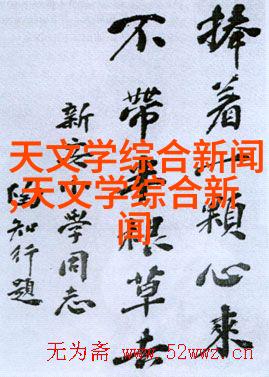 捧着一顆心來
不帶半根草去
新安小學同志
陶知行題
天文学综合新闻
,天文学综合新
闻
无为斋 www.52wwz.cn